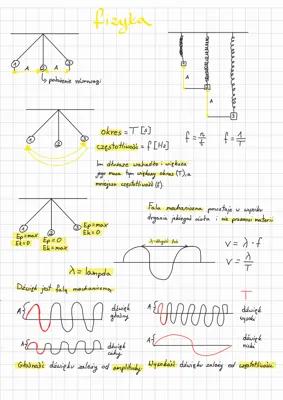 fizyka
1 2 3
A A
położenie równowagi
1
A
2
A
3
okres = T [s]
częstotliwość = f [Hz]
f = n/t f = 1/T
1 2 3
Im dłuższe wahadło i większa
jego masa tym większy okres (T), a
mniejsza częstotliwość (f).
1 2 3
Ep=max
Ek=0
Ep=0
Ek=max
Ep=max
Ek=0
Fala mechaniczna powstaje w wyniku
drgania jakiegoś ciała i nie przenosi materii
λ=długość fali
V = λ · f
V = λ/T
λ = lampda
Dźwięk jest falą mechaniczną
A{ dźwięk
głośny
A{ dźwięk
cichy
T
A{ dźwięk
wysoki
A{ dźwięk
niski
Głośność dźwięku zależy od amplitudy
Wysokość dźwięku zależy od częstotliwości